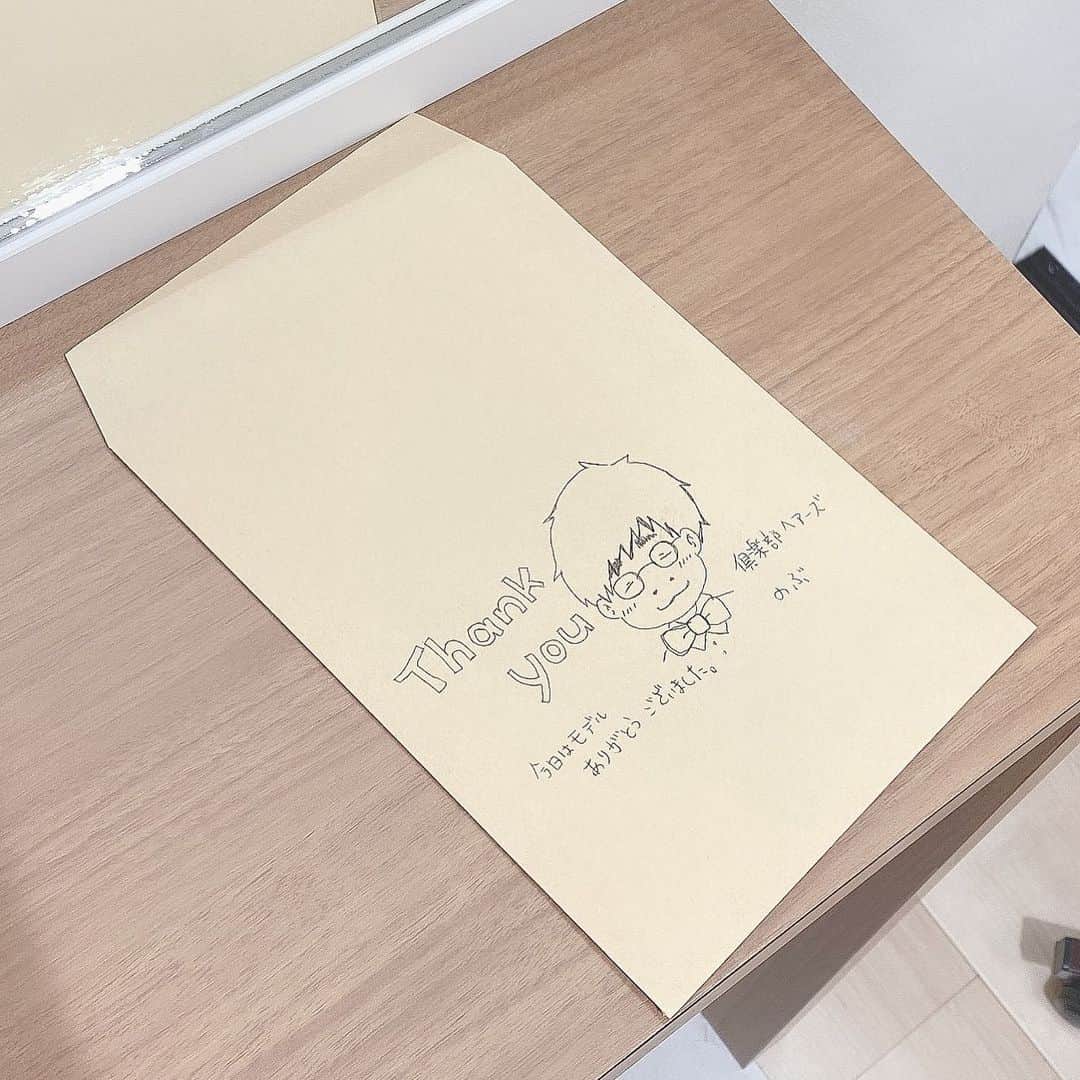 Thank
you
倶楽部ヘアーズ
のぶ
今日はモデル
ありがとうございました。